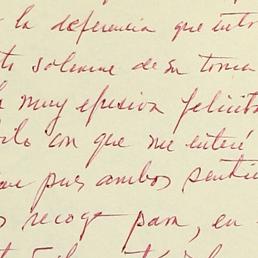 la deferencia que tuvo
solemne de su toma
muy efusiva felicita
con que me enteré
pues ambos senti
recoge para, en